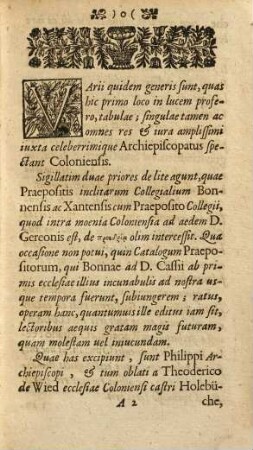 )o(
VArii quidem generis sunt, quas
hic primo loco in lucem profe-
ro, tabulae; singulae tamen ac
omnes res & iura amplissimi
iuxta celeberrimique Archiepiscopatus spe-
ctant Coloniensis.
Sigillatim duae priores de lite agunt, quae
Praepositis inclitarum Collegialium Bon-
nensis ac Xantensis cum Praeposito Collegii,
quod intra moenia Coloniensia ad aedem D.
Gereonis est, de olim intercessit. Qua
occasione non potui, quin Catalogum Praepo-
sitorum, qui Bonnae ad D. Cassii ab pri-
mis ecclesiae illius incunabulis ad nostra us-
que tempora fuerunt, subiungerem; ratus,
operam hanc, quantumuis ille editus iam sit,
lectoribus aequis gratam magis futuram,
quam molestam vel iniucundam.
Quae has excipiunt, sunt Philippi Ar-
chiepiscopi, & tum oblati a Theoderico
de Wied ecclesiae Coloniensi castri Holebü-
A 2 che,